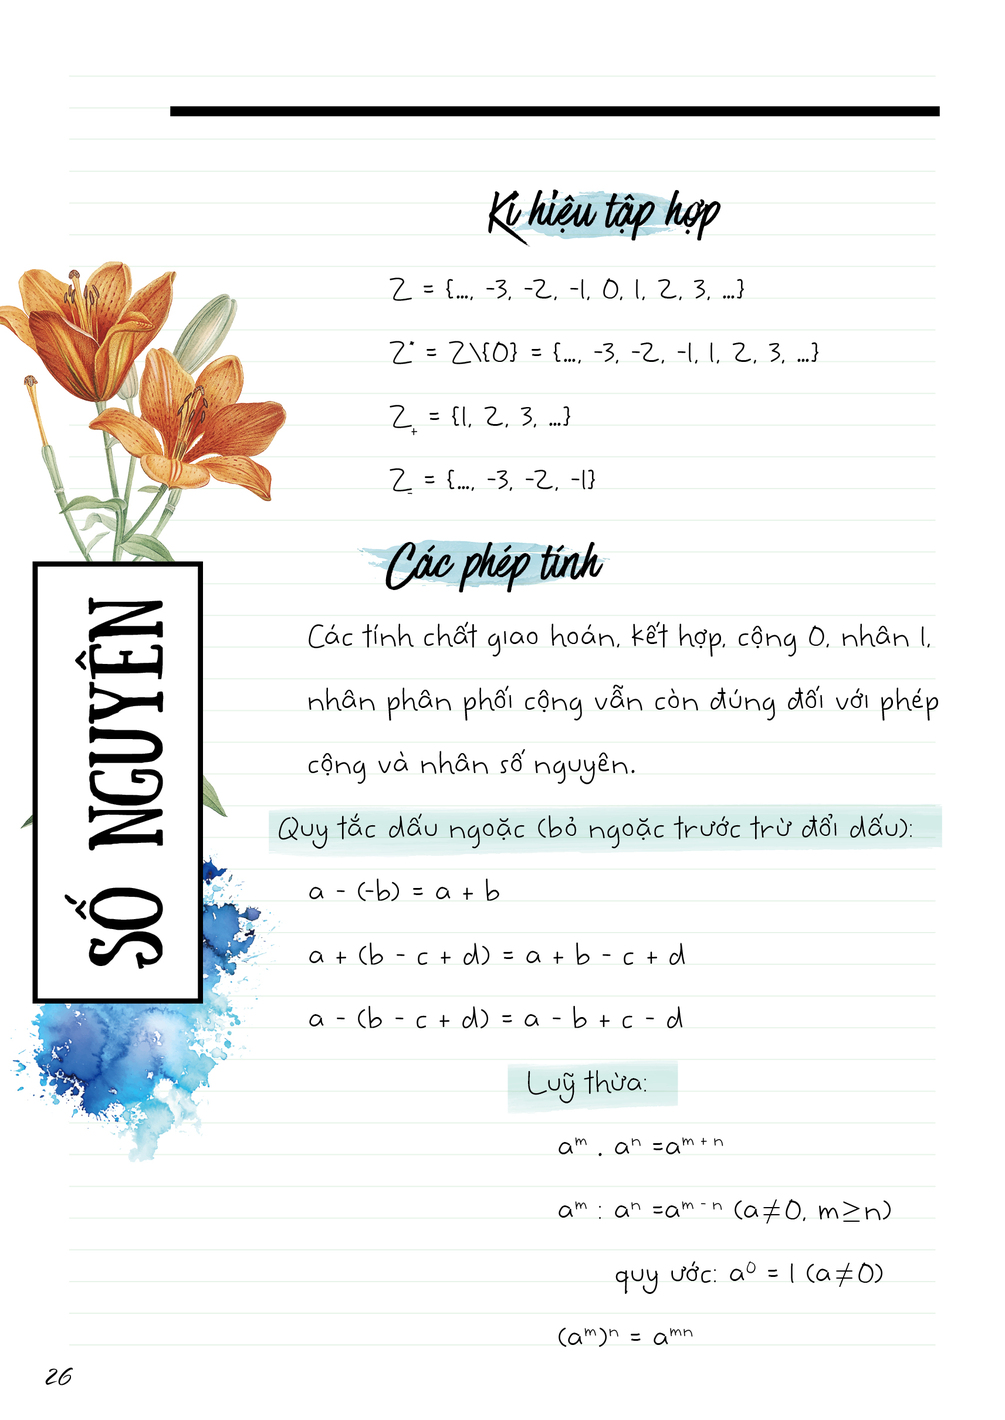 Kí hiệu tập hợp
Z = {..., -3, -2, -1, 0, 1, 2, 3, ...}
Z* = Z\{0} = {..., -3, -2, -1, 1, 2, 3, ...}
Z₊ = {1, 2, 3, ...}
Z₋ = {..., -3, -2, -1}
SỐ NGUYÊN
Các phép tính
Các tính chất giao hoán, kết hợp, cộng 0, nhân 1,
nhân phân phối cộng vẫn còn đúng đối với phép
cộng và nhân số nguyên.
Quy tắc dấu ngoặc (bỏ ngoặc trước trừ đổi dấu):
a - (-b) = a + b
a + (b - c + d) = a + b - c + d
a - (b - c + d) = a - b + c - d
Luỹ thừa:
aᵐ . aⁿ =aᵐ⁺ⁿ
aᵐ : aⁿ =aᵐ⁻ⁿ (a≠0, m≥n)
quy ước: a⁰ = 1 (a≠0)
(aᵐ)ⁿ = aᵐⁿ
26